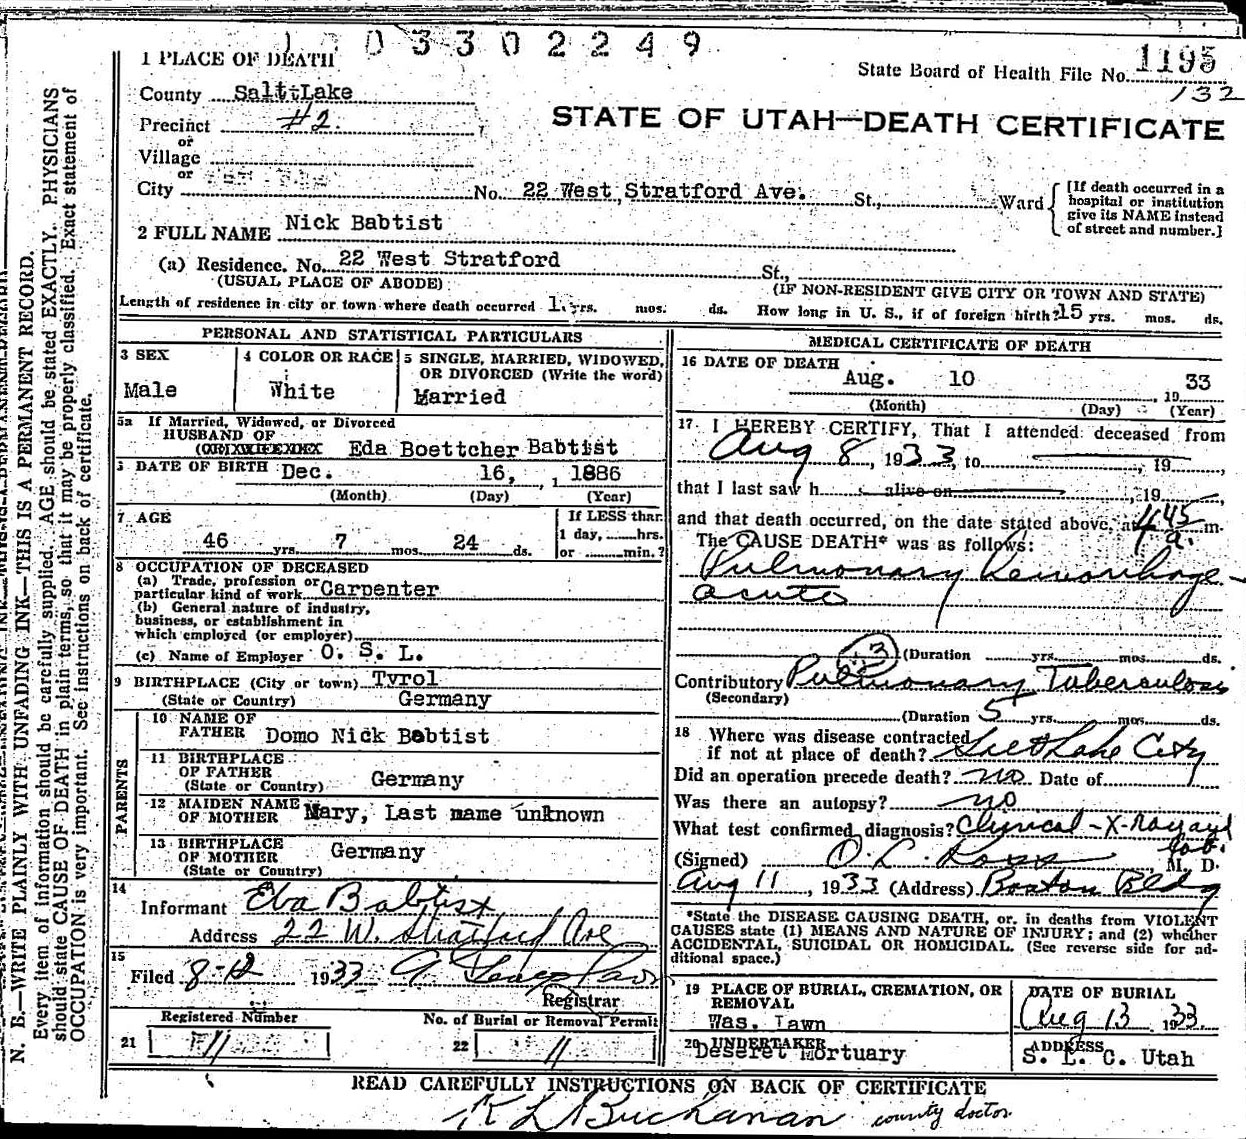 1 0 0 3 3 0 2 2 4 9
1 PLACE OF DEATH
State Board of Health File No. 1195
132
County Salt Lake
Precinct #2.
STATE OF UTAH—DEATH CERTIFICATE
or
Village
or
City No. 22 West Stratford Ave. St., Ward
[If death occurred in a hospital or institution give its NAME instead of street and number.]
2 FULL NAME Nick Babtist
(a) Residence. No. 22 West Stratford St.,
(USUAL PLACE OF ABODE) (IF NON-RESIDENT GIVE CITY OR TOWN AND STATE)
Length of residence in city or town where death occurred 1 yrs. mos. ds. How long in U. S., if of foreign birth? 15 yrs. mos. ds.
PERSONAL AND STATISTICAL PARTICULARS
3 SEX
Male
4 COLOR OR RACE
White
5 SINGLE, MARRIED, WIDOWED,
OR DIVORCED (Write the word)
Married
5a If Married, Widowed, or Divorced
HUSBAND OF
Eda Boettcher Babtist
DATE OF BIRTH Dec. 16, 1886
(Month) (Day) (Year)
7 AGE
46 yrs. 7 mos. 24 ds.
If LESS than
1 day, hrs.
or min.?
8 OCCUPATION OF DECEASED
(a) Trade, profession or
particular kind of work Carpenter
(b) General nature of industry,
business, or establishment in
which employed (or employer)
(c) Name of Employer O. S. L.
9 BIRTHPLACE (City or town) Tyrol
(State or Country) Germany
PARENTS
10 NAME OF
FATHER Domo Nick Babtist
11 BIRTHPLACE
OF FATHER
(State or Country) Germany
12 MAIDEN NAME
OF MOTHER Mary, Last name unknown
13 BIRTHPLACE
OF MOTHER Germany
(State or Country)
14
Informant Eba Babtist
Address 22 W. Stratford Ave
15
Filed 8-12 1933
Registrar
Registered Number
No. of Burial or Removal Permit
21
22
MEDICAL CERTIFICATE OF DEATH
16 DATE OF DEATH
Aug. 10, 1933
(Month) (Day) (Year)
17 I HEREBY CERTIFY, That I attended deceased from
Aug 8, 1933, to , 19 ,
that I last saw h alive on , 19 ,
and that death occurred, on the date stated above, at 4 45 a. m.
The CAUSE DEATH* was as follows:
Pulmonary Hemorrhage -
acute
3
(Duration yrs. mos. ds.
Contributory Pulmonary Tuberculosis
(Secondary)
(Duration 5 yrs. mos. ds.
18 Where was disease contracted
if not at place of death? Salt Lake City
Did an operation precede death? no Date of
Was there an autopsy? no
What test confirmed diagnosis? Clinical - X-Ray and
Lab.
(Signed) O. C. Ross M. D.
Aug 11, 1933 (Address) Boston Bldg
*State the DISEASE CAUSING DEATH, or, in deaths from VIOLENT
CAUSES state (1) MEANS AND NATURE OF INJURY; and (2) whether
ACCIDENTAL, SUICIDAL OR HOMICIDAL. (See reverse side for ad-
ditional space.)
19 PLACE OF BURIAL, CREMATION, OR
REMOVAL
Was. Lawn
DATE OF BURIAL
Aug 13 1933.
20 UNDERTAKER
Deseret Mortuary
ADDRESS
S. L. C. Utah
READ CAREFULLY INSTRUCTIONS ON BACK OF CERTIFICATE
K L Buchanan county doctor
N. B.—WRITE PLAINLY WITH UNFADING INK—THIS IS A PERMANENT RECORD.
Every item of information should be carefully supplied. AGE should be stated EXACTLY. PHYSICIANS
should state CAUSE OF DEATH in plain terms, so that it may be properly classified. Exact statement of
OCCUPATION is very important. See instructions on back of certificate.